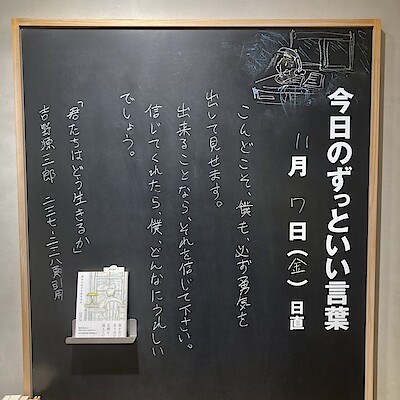 今日のずっといい言葉
11月7日(金) 日直
こんどこそ、僕も、必ず勇気を
出して見せます。
出来ることなら、それを信じて下さい。
信じてくれたら、僕、どんなにうれしい
でしょう。
「君たちは、どう生きるか」
吉野源三郎 二二七・二二八頁引用